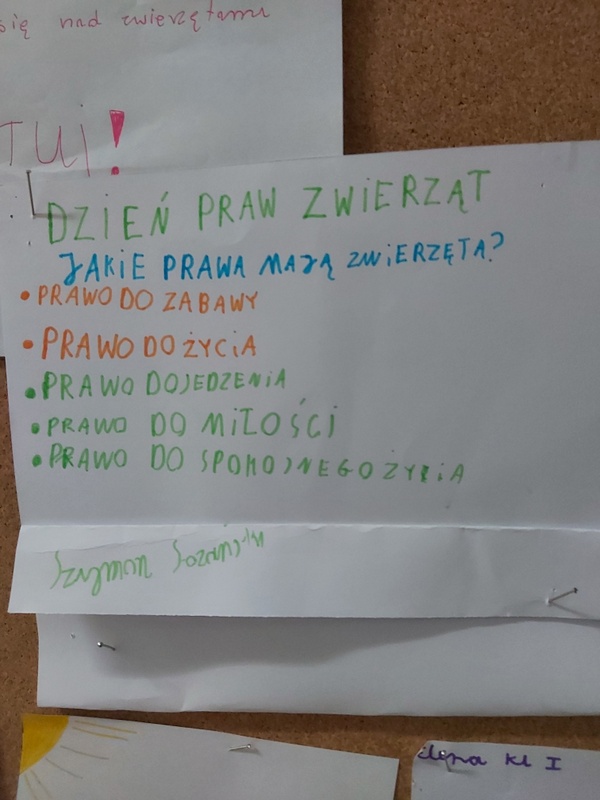 się nad zwierzętami
TUJ!
DZIEŃ PRAW ZWIERZĄT
JAKIE PRAWA MAJĄ ZWIERZĘTA?
• PRAWO DO ZABAWY
• PRAWO DO ŻYCIA
• PRAWO DO JEDZENIA
• PRAWO DO MIŁOŚCI
• PRAWO DO SPOKOJNEGO ŻYCIA
Szymon
kl I